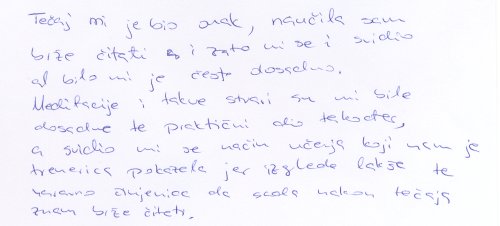 Tečaj mi je bio onak, naučila sam
brže čitati i zato mi se i svidio
al bilo mi je često dosadno.
Meditacije i takve stvari su mi bile
dosadne te praktični dio također,
a svidio mi se način učenja koji nam je
trenerica pokazala jer izgleda lakše te
naravno činjenica da sada nakon tečaja
znam brže čitati.